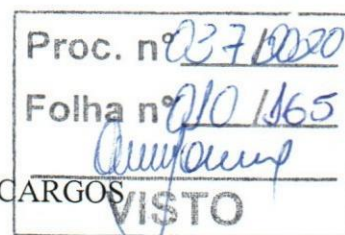 Proc. nº 037/2020
Folha nº 010/165
CARGOS
VISTO